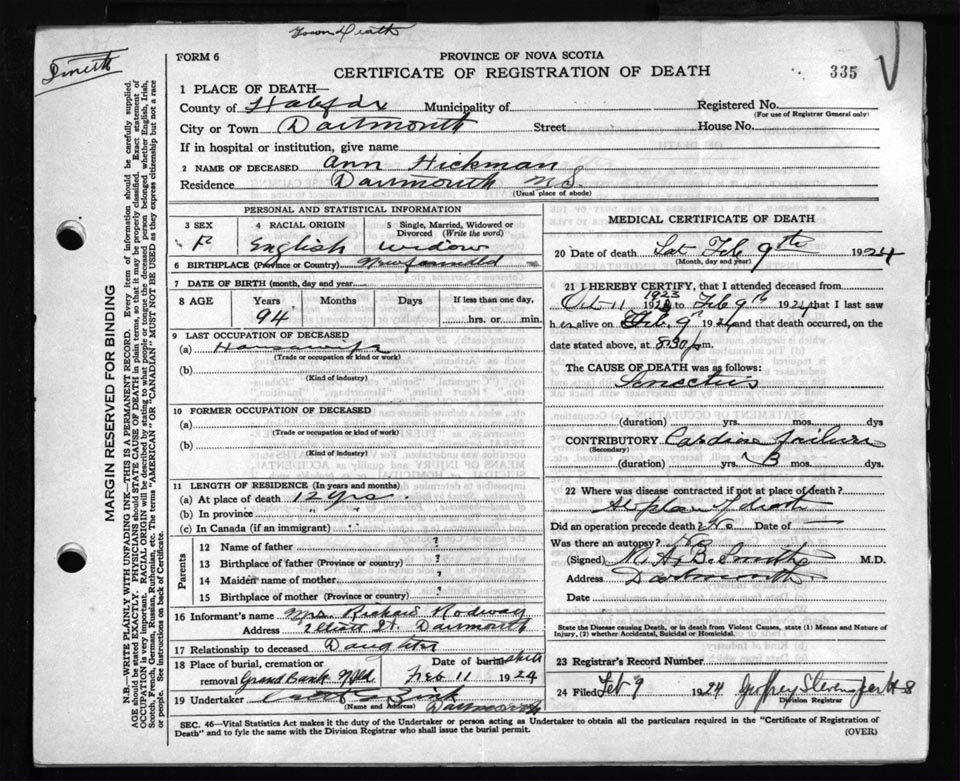 Town Death
Smith
FORM 6
PROVINCE OF NOVA SCOTIA
CERTIFICATE OF REGISTRATION OF DEATH
335
1 PLACE OF DEATH—
County of Halifax Municipality of Registered No.
(For use of Registrar General only)
City or Town Dartmouth Street House No.
If in hospital or institution, give name
2 NAME OF DECEASED Ann Hickman
Residence Dartmouth N.S.
(Usual place of abode)
PERSONAL AND STATISTICAL INFORMATION
3 SEX 4 RACIAL ORIGIN 5 Single, Married, Widowed or Divorced (Write the word)
F English widow
6 BIRTHPLACE (Province or Country)
7 DATE OF BIRTH (month, day and year)
8 AGE Years Months Days If less than one day,
94 hrs. or min.
9 LAST OCCUPATION OF DECEASED
(a) Housewife
(Trade or occupation or kind or work)
(b)
(Kind of industry)
10 FORMER OCCUPATION OF DECEASED
(a)
(Trade or occupation or kind of work)
(b)
(Kind of industry)
11 LENGTH OF RESIDENCE (In years and months)
(a) At place of death 12 yrs.
(b) In province " "
(c) In Canada (if an immigrant) "
Parents
12 Name of father ?
13 Birthplace of father (Province or country) ?
14 Maiden name of mother ?
15 Birthplace of mother (Province or country) ?
16 Informant's name Mrs. Richard Rodway
Address Elliott St. Dartmouth
17 Relationship to deceased Daughter
18 Place of burial, cremation or Date of burial
removal Grand Bank Nfld Feb 11 1924
19 Undertaker
(Name and Address) Dartmouth
MEDICAL CERTIFICATE OF DEATH
20 Date of death Sat Feb 9th 1924
(Month, day and year)
21 I HEREBY CERTIFY, that I attended deceased from
Oct 11 1923 to Feb 9th 1924 that I last saw
her alive on Feb 9th 1924 and that death occurred, on the
date stated above, at 8.30 p m.
The CAUSE OF DEATH was as follows:
Senectus
(duration) yrs. mos. dys
CONTRIBUTORY Cardiac failure
(Secondary)
(duration) yrs. mos. dys.
22 Where was disease contracted if not at place of death?
At place of death
Did an operation precede death? No Date of —
Was there an autopsy? No
(Signed) Smith M.D.
Address Dartmouth
Date
State the Disease causing Death, or in death from Violent Causes, state (1) Means and Nature of
Injury, (2) whether Accidental, Suicidal or Homicidal.
23 Registrar's Record Number
24 Filed Feb 9 1924 Geoffrey Stevens
Division Registrar
SEC. 46—Vital Statistics Act makes it the duty of the Undertaker or person acting as Undertaker to obtain all the particulars required in the "Certificate of Registration of
Death" and to fyle the same with the Division Registrar who shall issue the burial permit.
(OVER)
MARGIN RESERVED FOR BINDING
N.B.—WRITE PLAINLY WITH UNFADING INK—THIS IS A PERMANENT RECORD. Every item of information should be carefully supplied.
AGE should be stated EXACTLY. PHYSICIANS should STATE CAUSE OF DEATH in plain terms, so that it may be properly classified. Exact statement of
OCCUPATION is very important. RACIAL ORIGIN will be described by stating to what people or tongue the deceased person belonged whether English, Irish,
Scotch, French, German, Russian, Ruthenian, etc. The terms "AMERICAN" or "CANADIAN" MUST NOT BE USED as they express citizenship but not a race
or people. See instructions on back of Certificate.